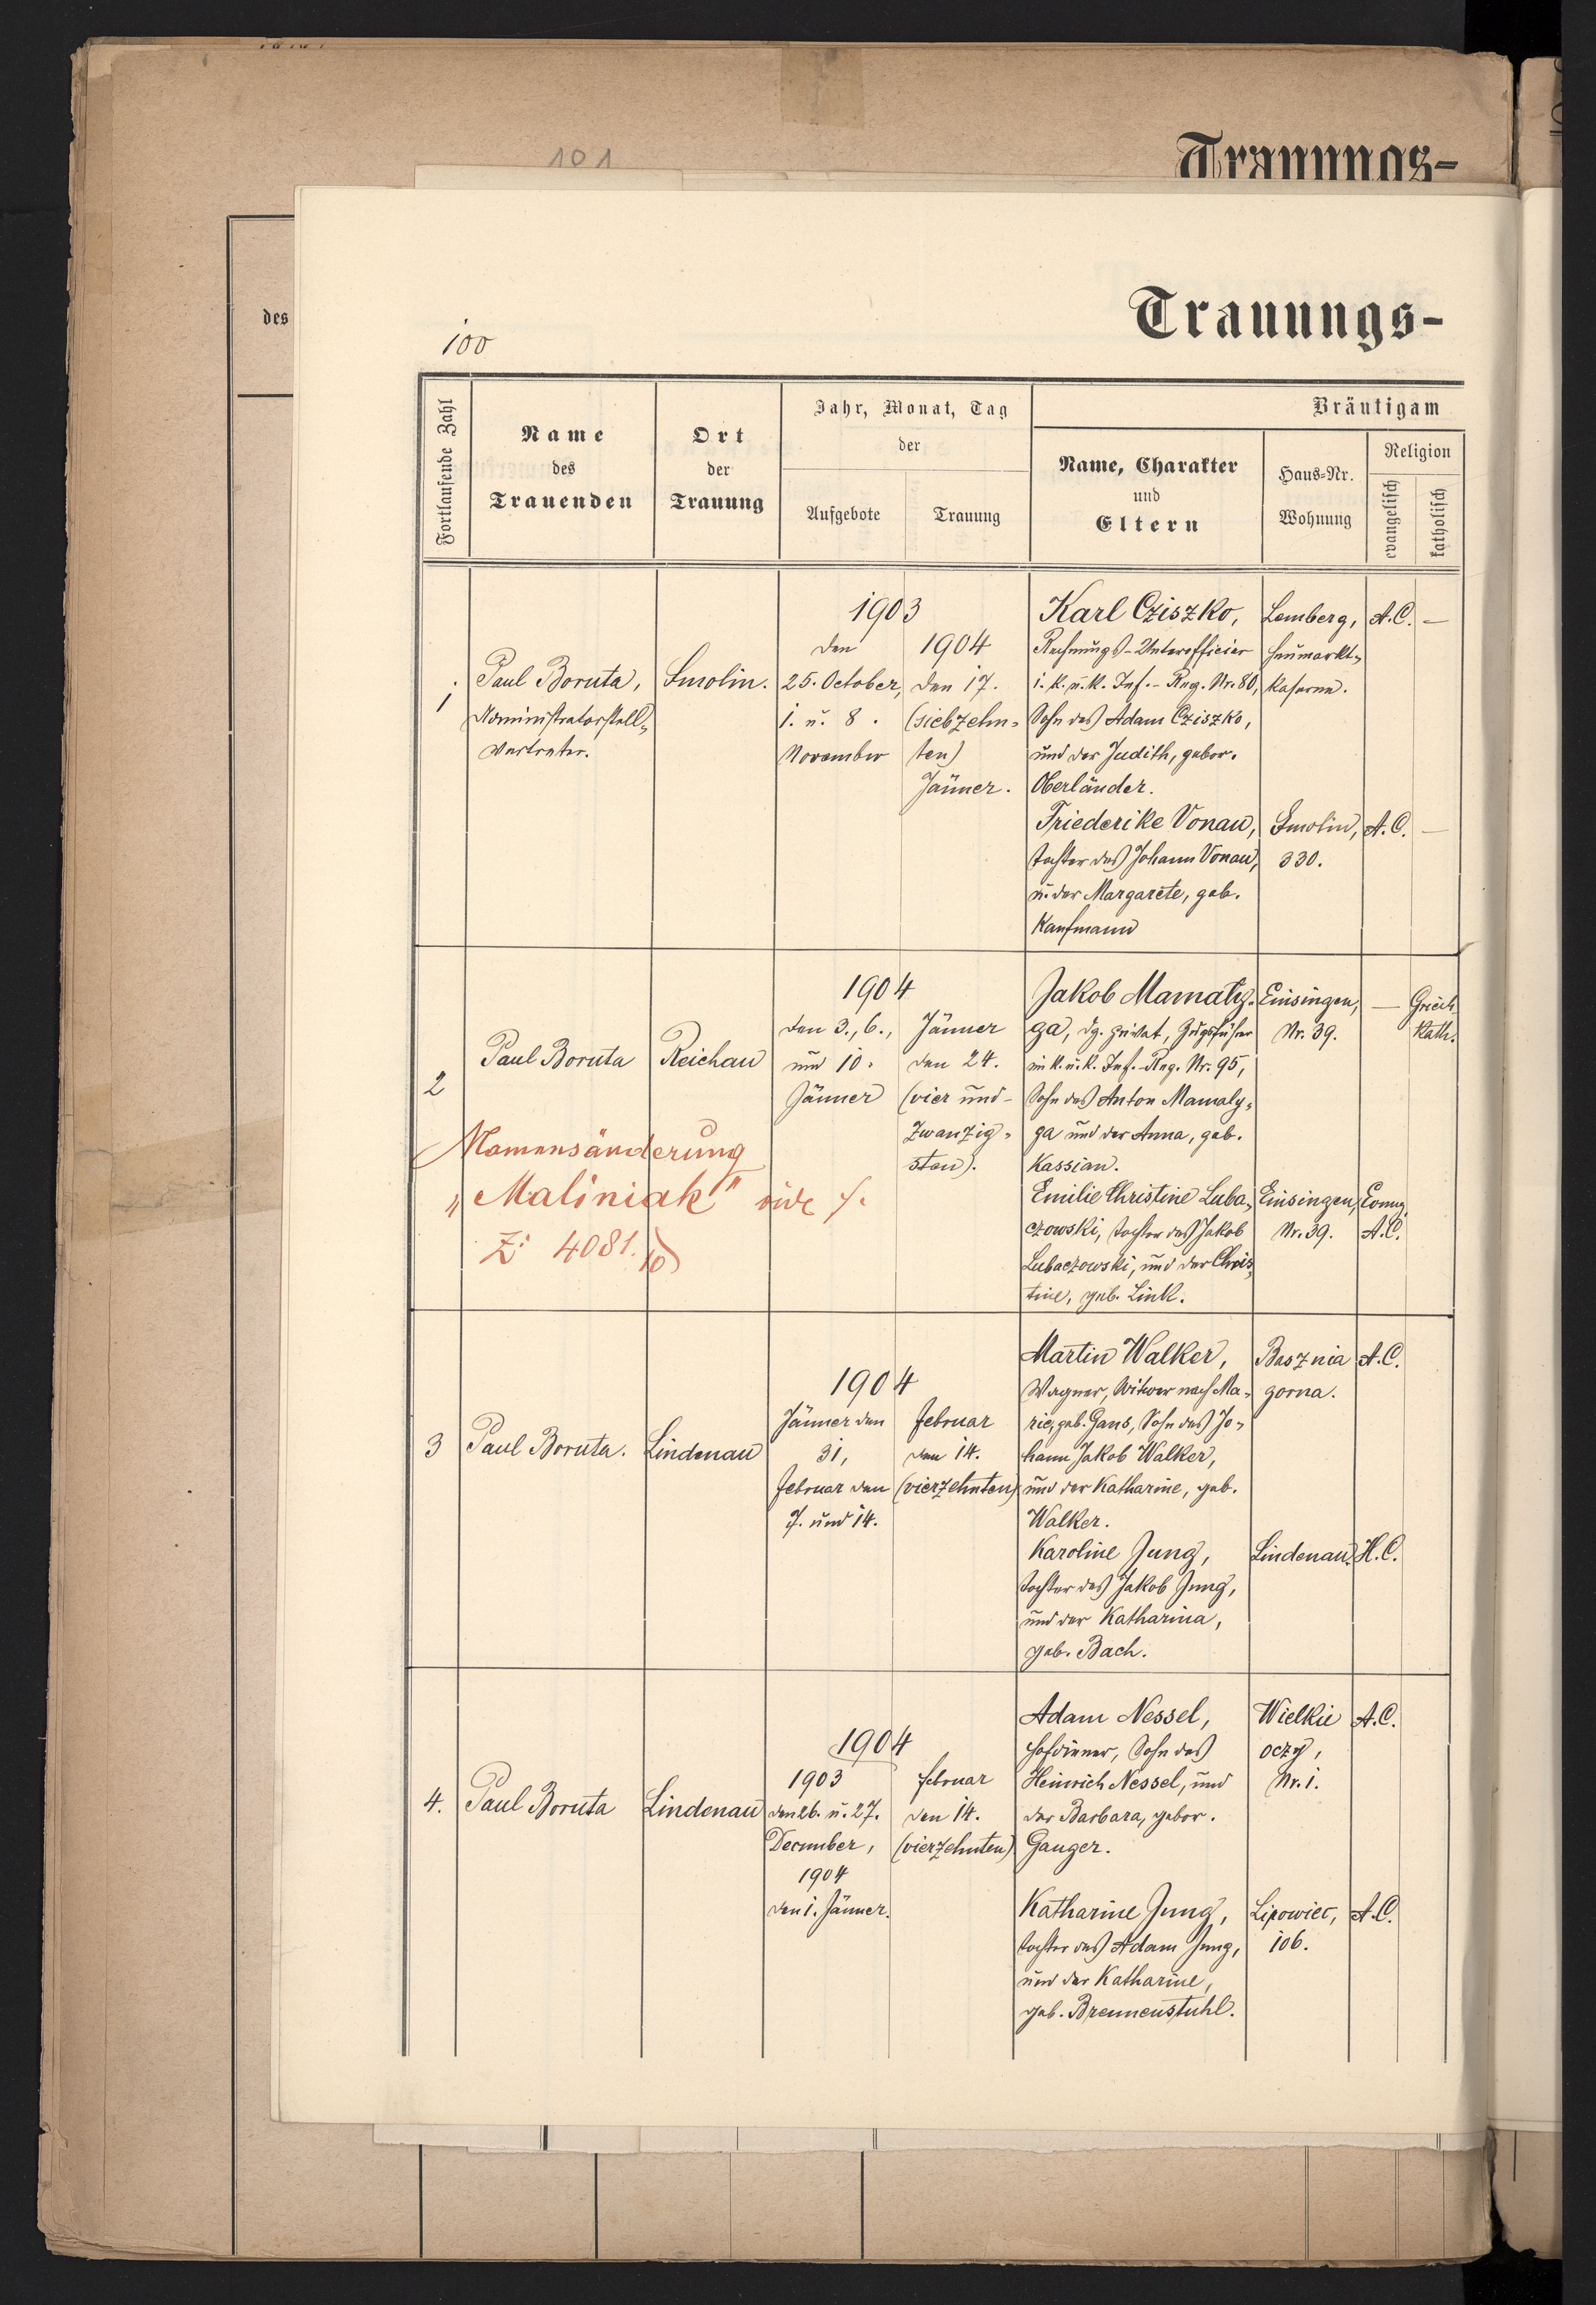 101
Trauungs-
des
Trauungs-
100
Fortlaufende Zahl
Name
des
Trauenden
Ort
der
Trauung
Jahr, Monat, Tag
der
Aufgebote
Trauung
Bräutigam
Name, Charakter
und
Eltern
Haus-Nr.
Wohnung
Religion
evangelisch
katholisch
1
Paul Boruta,
Administratorstell-
vertreter.
Smolin.
1903
den
25. October,
1. u. 8.
November
1904
den 17.
(siebzehn-
ten)
Jänner.
Karl Cziszko,
Rechnungs-Unterofficier
i. k. u. k. Inf.-Reg. Nr. 80,
Sohn des Adam Cziszko,
und der Judith, gebor.
Oberländer.
Lemberg,
Heumarkt-
kaserne.
A.C.
—
Friederike Vonau,
Tochter des Johann Vonau,
u. der Margarete, geb.
Kaufmann
Smolin,
330.
A.C.
—
2
Paul Boruta
Reichau
1904
den 3., 6.,
und 10.
Jänner
Jänner
den 24.
(vier und-
zwanzig-
sten).
Jakob Mamaly-
ga, dz. privat, Zugsführer
im k. u. k. Inf.-Reg. Nr. 95,
Sohn des Anton Mamaly-
ga und der Anna, geb.
Kassian.
Einsingen,
Nr. 39.
—
Griech.
kath.
Namensänderung
"Maliniak" vide
Z: 4081.
Emilie Christine Luba-
czowski, Tochter des Jakob
Lubaczowski, und der Chris-
tine, geb. Link.
Einsingen,
Nr. 39.
Evang.
A.C.
3
Paul Boruta.
Lindenau
1904
Jänner den
31,
Februar den
7. und 14.
Februar
den 14.
(vierzehnten)
Martin Walker,
Wagner, Witwer nach Ma-
rie, geb. Gans, Sohn des Jo-
hann Jakob Walker,
und der Katharine, geb.
Walker.
Basznia
gorna.
A.C.
Karoline Jung,
Tochter des Jakob Jung,
und der Katharina,
geb. Bach.
Lindenau.
H.C.
4.
Paul Boruta
Lindenau
1904
1903
den 26. u. 27.
December,
1904
den 1. Jänner.
Februar
den 14.
(vierzehnten)
Adam Nessel,
Hofdiener, Sohn des
Heinrich Nessel, und
der Barbara, gebor.
Gauger.
Wielkie
oczy,
Nr. 1.
A.C.
Katharine Jung,
Tochter des Adam Jung,
und der Katharine,
geb. Brennenstuhl.
Lipowiec,
106.
A.C.